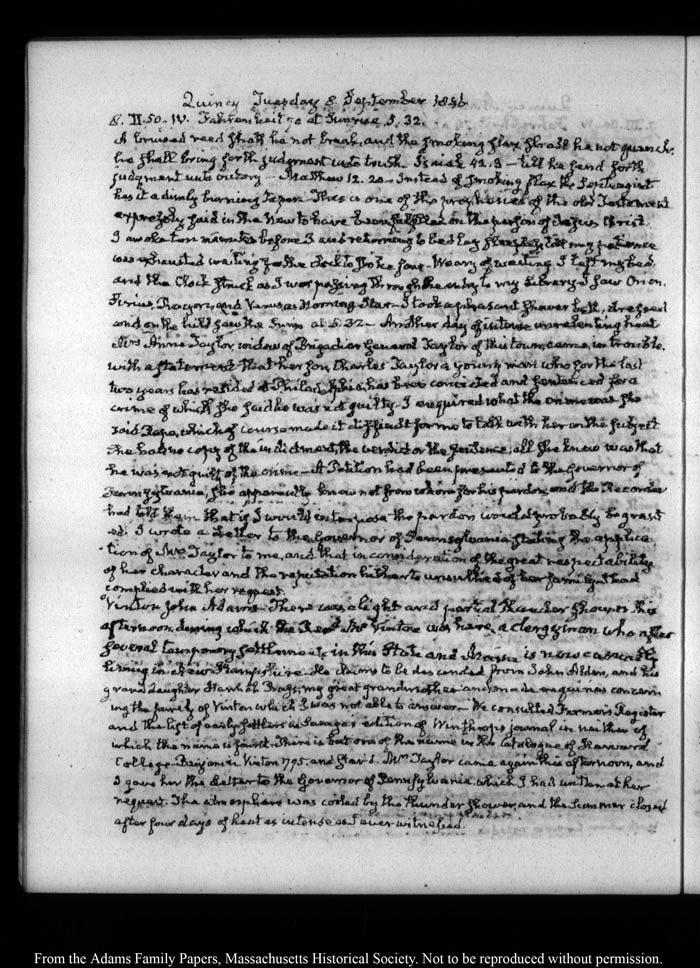 Quincy Tuesday 8. September 1846
8. II.50. IV. Fahrenheit 70 at Sunrise 5. 32.
A bruised reed shall he not break, and the smoking flax shall he not quench.
he shall bring forth judgment unto truth. Isaiah 42.3 — till he send forth
judgment unto victory — Matthew 12. 20 — Instead of smoking flax the Septuagint
has it a dimly burning taper. This is one of the prophesies of the old Testament
expressly said in the New to have been fulfilled in the person of Jesus Christ
I awoke ten minutes before 3 and returning to bed lay sleepless till my patience
was exhausted waiting for the Clock to strike four — Weary of waiting I left my bed
and the Clock struck as I was passing through the entry to my Library. I saw Orion
Sirius, Procyon, and Venus as Morning Star — I took a pleasant shower bath, dressed
and on the hill saw the Sun at 5.32 — Another day of intense unrelenting heat
Mrs Anne Taylor widow of Brigadier General Taylor of this town, came in trouble
with a statement that her son Charles Taylor a young man who for the last
two years has resided at Philadelphia has been convicted and sentenced for a
crime of which she said he was not guilty. I enquired what the crime was she
said Rape, which of course made it difficult for me to talk with her on the subject
She had no copy of the indictment, the verdict or the sentence, all she knew was that
he was not guilty of the crime — A Petition had been presented to the Governor of
Pennsylvania, she apparently knew not from whom for his pardon and the Recorder
had told them that if I would interpose the pardon would probably be grant
ed. I wrote a Letter to the Governor of Pennsylvania stating the applica
tion of Mrs Taylor to me, and that in consideration of the great respectability
of her character and the reputation hitherto unsullied of her family I had
complied with her request.
Vinton John Adams There was a light and partial thunder shower this
afternoon during which the Revd Mr Vinton was here, a clergyman who after
several temporary settlements in this State and Maine is now
in New Hampshire. He claims to be descended from John Alden, and his
grand daughter Hannah Bass, my great grandmother and made enquiries concern
ing the family of Vinton which I was not able to answer — We consulted Farmer's Register
and the list of early settlers in Savage's edition of Winthrop's journal in neither of
which the name is found. There is but one of the name in the Catalogue of Harvard
College. Vinton 1795. and Star'd. Mrs Taylor came again this afternoon, and
I gave her the Letter to the Governor of Pennsylvania which I had written at her
request. The atmosphere was cooled by the thunder shower, and the Summer closed
after four days of heat as intense as I ever witnessed.
From the Adams Family Papers, Massachusetts Historical Society. Not to be reproduced without permission.